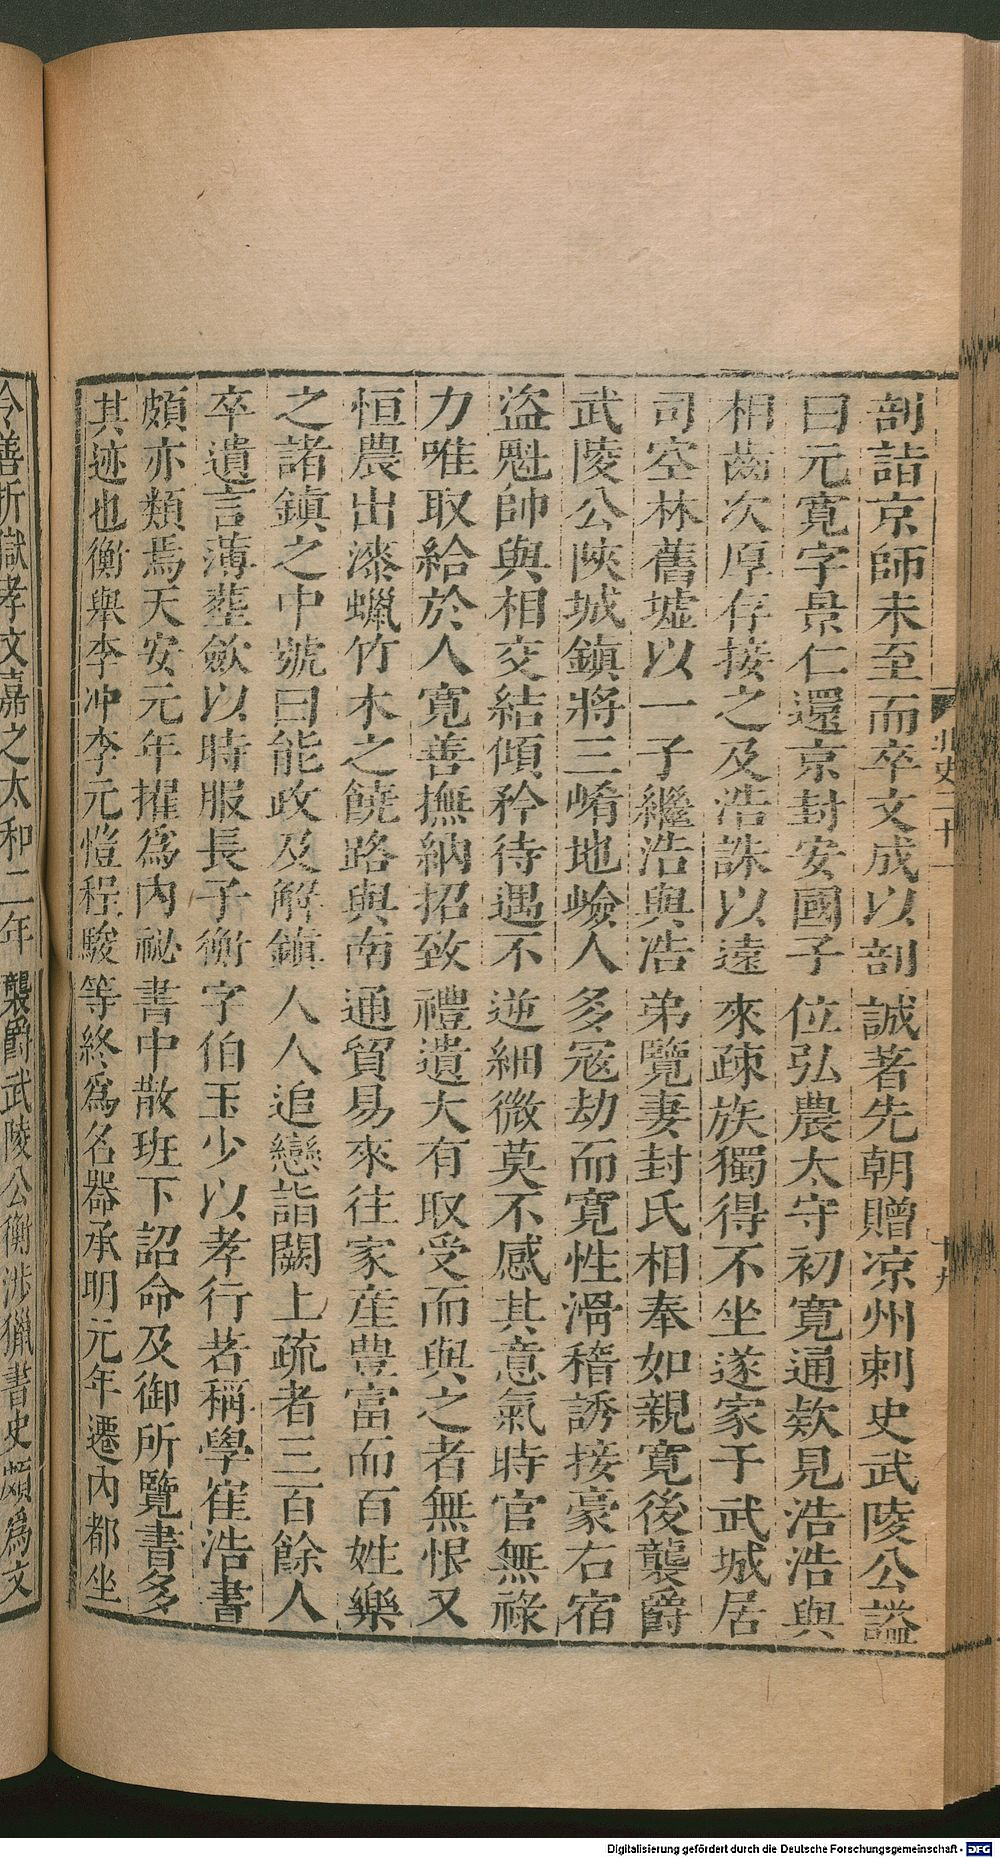 剖詣京師未至而卒文成以剖誠著先朝贈凉州刺史武陵公謚
曰元寬字景仁還京封安國子位弘農太守初寬通欵見浩浩與
相齒次厚存接之及浩誅以遠來疎族獨得不坐遂家于武城居
司空林舊墟以一子繼浩與浩弟覽妻封氏相奉如親寬後襲爵
武陵公陝城鎮將三崤地嶮人多冦劫而寬性滑稽誘接豪右宿
盜魁帥與相交結傾矜待遇不逆細微莫不感其意氣時官無祿
力唯取給於人寬善撫納招致禮遺大有取受而與之者無恨又
恒農出漆蠟竹木之饒路與南通貿易來往家産豊富而百姓樂
之諸鎮之中號曰能政及解鎮人人追戀詣闕上疏者三百餘人
卒遺言薄塟歛以時服長子衡字伯玉少以孝行著稱學崔浩書
頗亦類焉天安元年擢爲內祕書中散班下詔命及御所覽書多
其迹也衡舉李冲李元愷程駿等終爲名器承明元年遷內都坐
令善折獄孝文嘉之太和二年襲爵武陵公衡涉獵書史頗爲文
北史二十一
十九
Digitalisierung gefördert durch die Deutsche Forschungsgemeinschaft - DFG